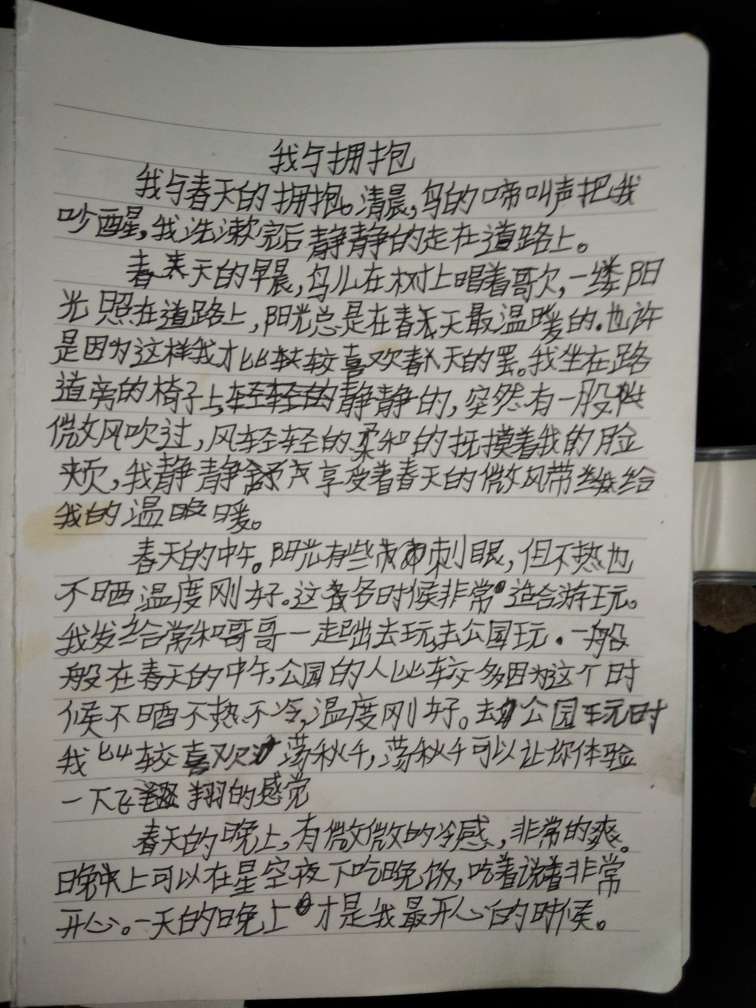 我与拥抱
我与春天的拥抱。清晨,鸟的啼叫声把我
吵醒,我洗漱完后静静的走在道路上。
春天的早晨,鸟儿在树上唱着歌,一缕阳
光照在道路上,阳光总是在春天最温暖的.也许
是因为这样我才比较喜欢春天的罢。我坐在路
道旁的椅子上,静静的,突然有一股
微风吹过,风轻轻的柔和的抚摸着我的脸
颊,我静静享受着春天的微风带给
我的温暖。
春天的中午。阳光有些刺眼,但不热也
不晒温度刚好。这时候非常适合游玩。
我经常和哥哥一起出去玩去公园玩.一般
般在春天的中午,公园的人比较多因为这个时
候不晒不热不冷,温度刚好。去公园玩时
我比较喜欢荡秋千,荡秋千可以让你体验
一下飞翔的感觉
春天的晚上,有微微的冷感,非常的爽。
晚上可以在星空夜下吃晚饭,吃着说着非常
开心。一天的晚上才是我最开心的时候。